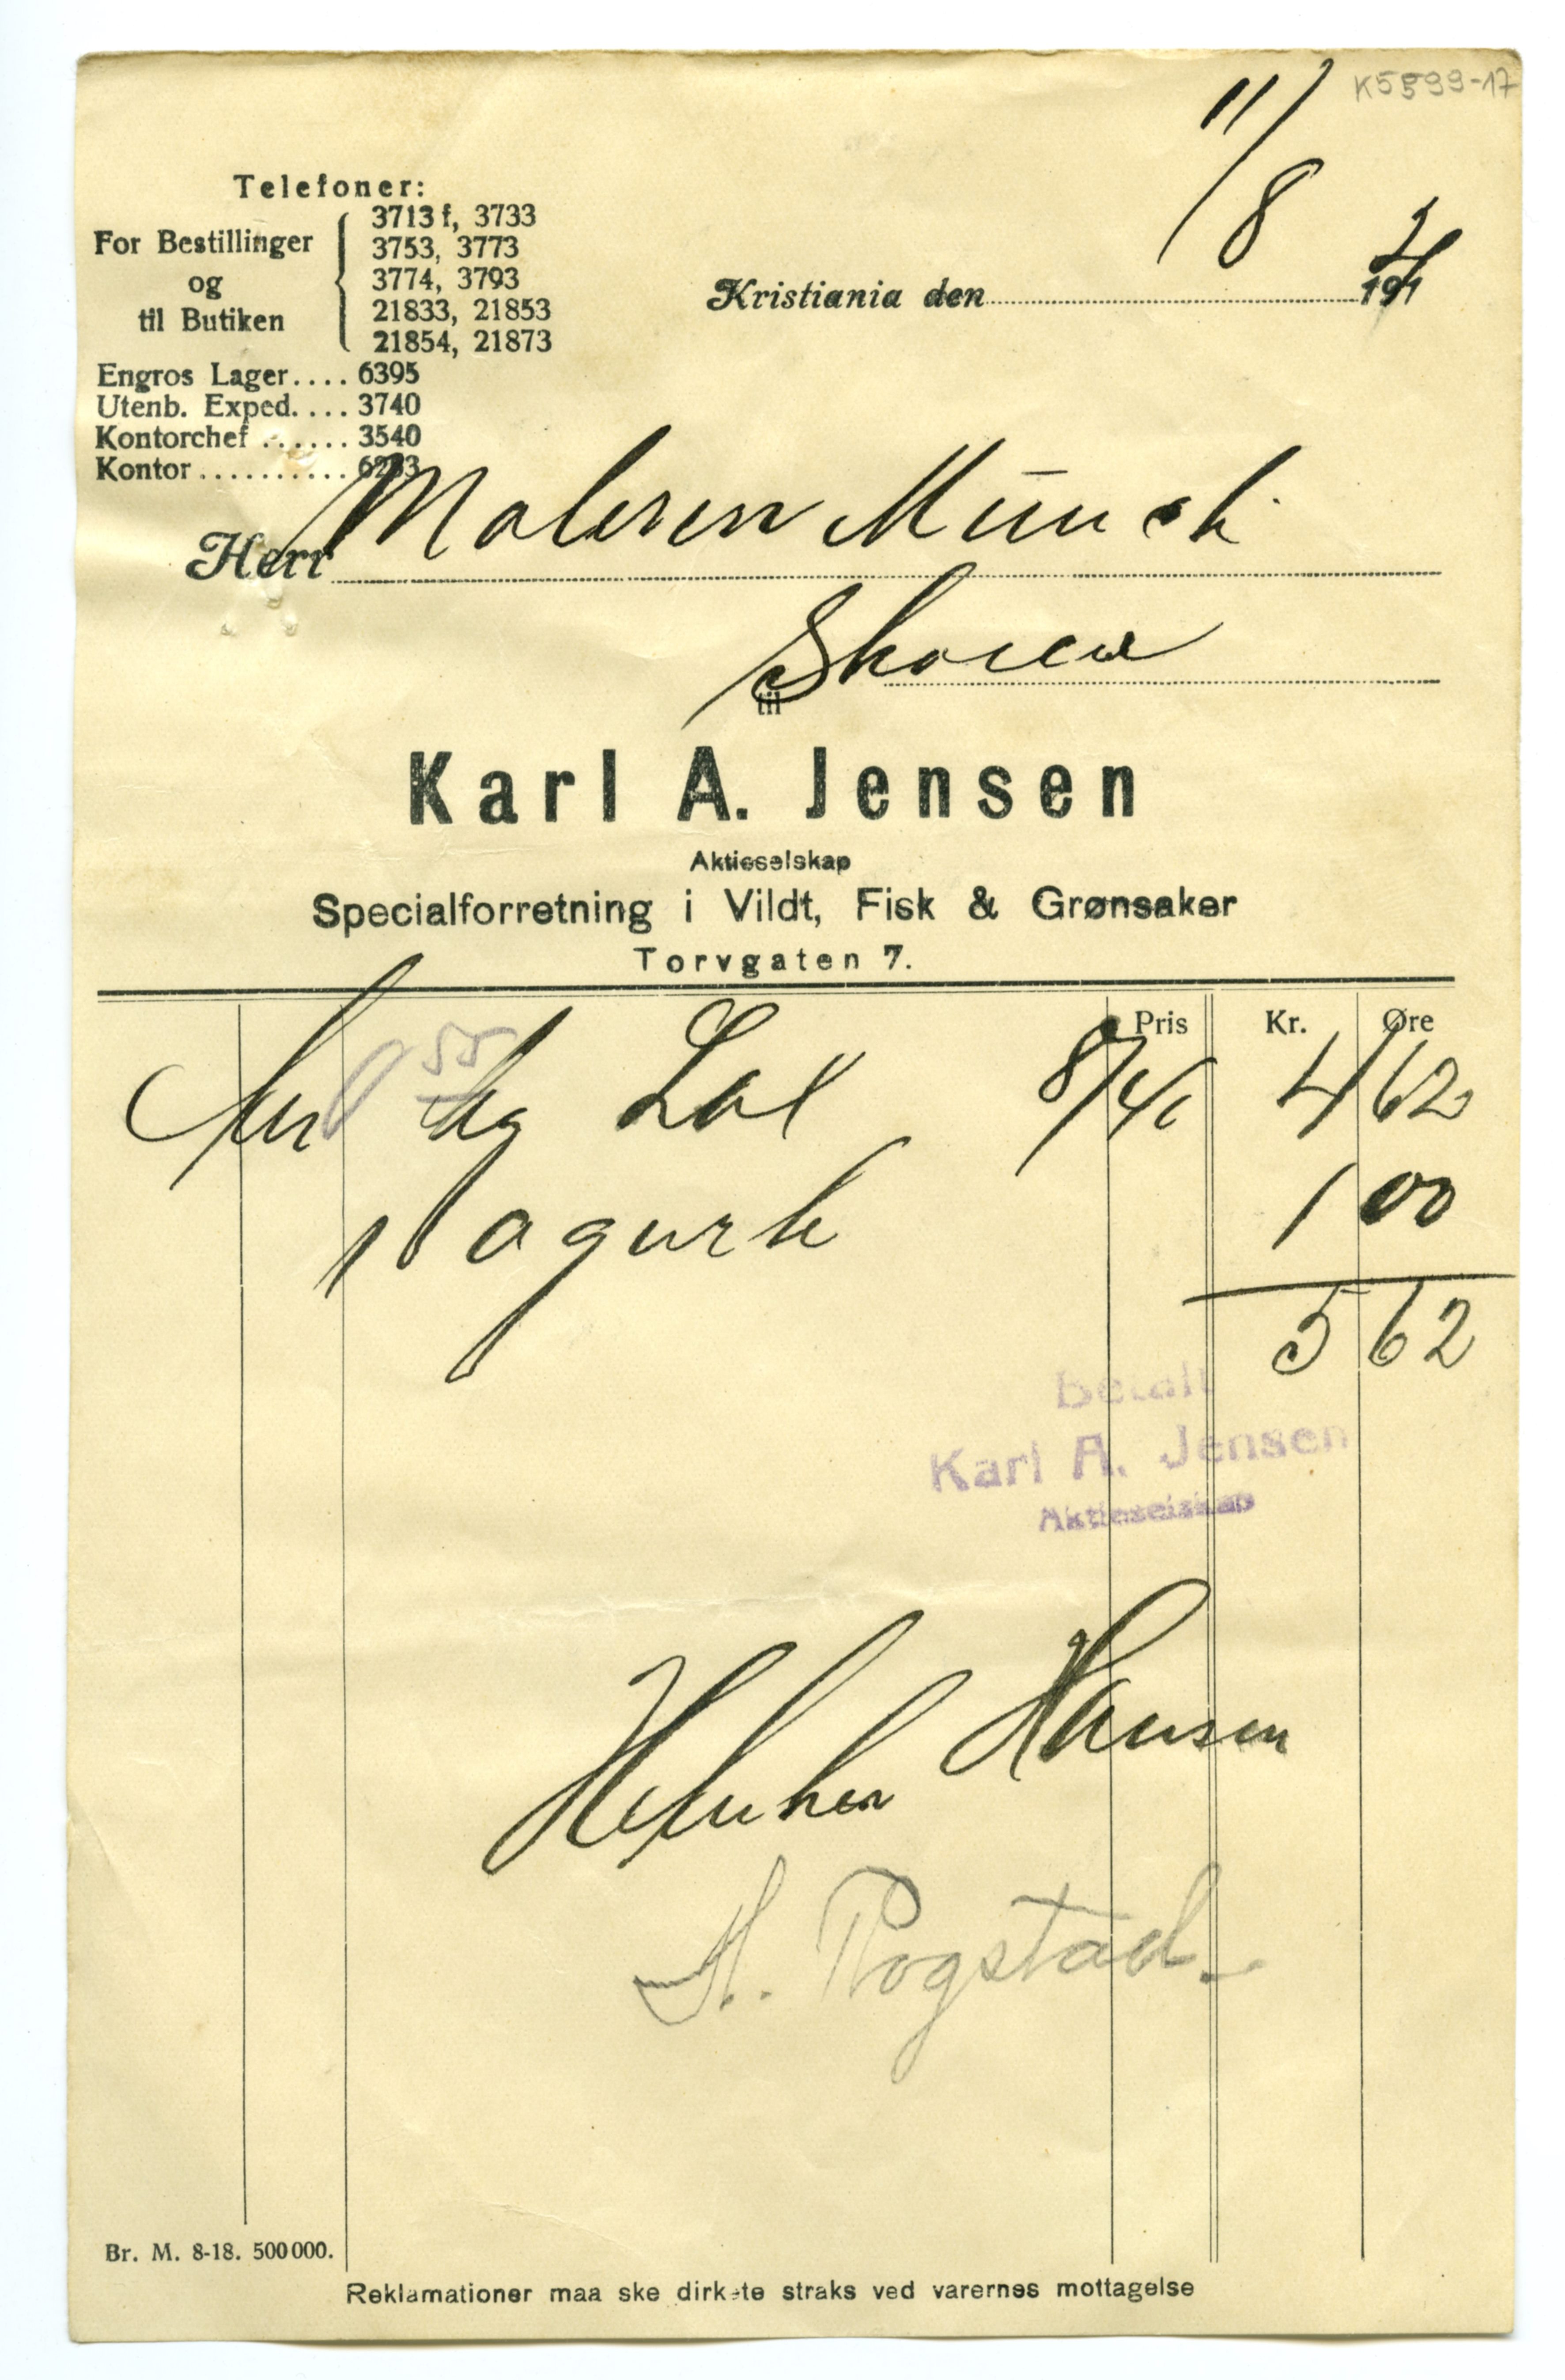 K5599-17
11/8
Telefoner:
For Bestillinger og til Butiken
3713 f, 3733
3753, 3773
3774, 3793
21833, 21853
21854, 21873
Kristiania den 191
Engros Lager.... 6395
Utenb. Exped. ... 3740
Kontorchef ...... 3540
Kontor .......... 6233
Herr Maleren Munch
Skøien
til
Karl A. Jensen
Aktieselskap
Specialforretning i Vildt, Fisk & Grønsaker
Torvgaten 7.
Pris Kr. Øre
55
kg Lax 8/40 4 62
1 agurk 1 00
5 62
Betalt
Karl A. Jensen
Aktieselskap
Hansen
H. Rogstad.
Br. M. 8-18. 500000.
Reklamationer maa ske dirkete straks ved varernes mottagelse